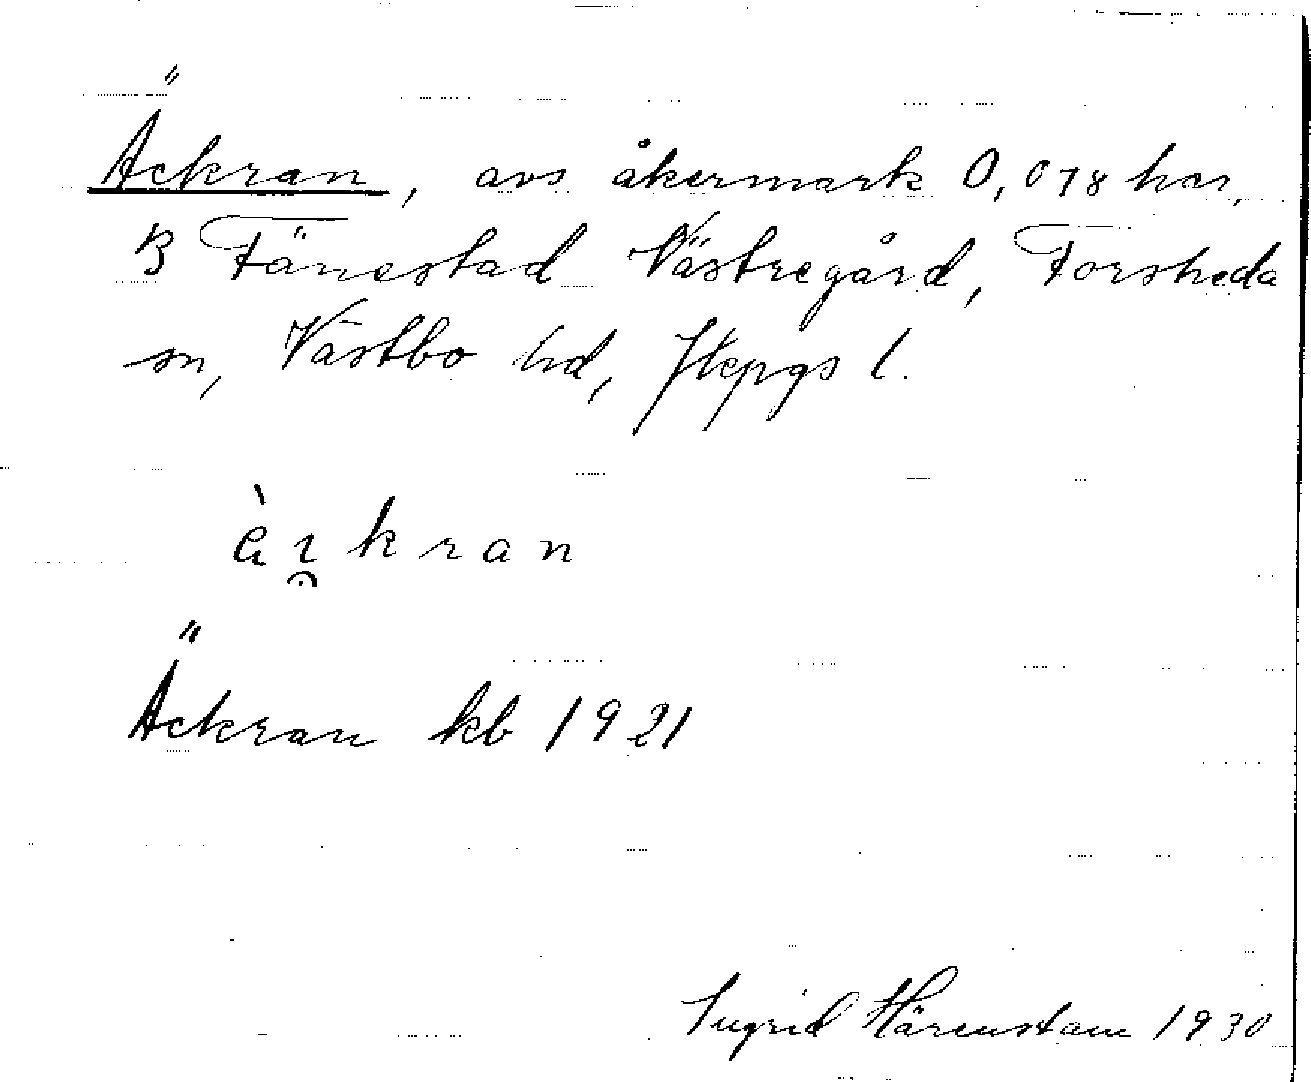 Äckran, avs. åkermark 0,078 har,
B Fänestad Västregård, Forsheda
sn, Västbo hd, Jkpgs l.
Äckran kb 1921
Ingrid Härenstam 1930